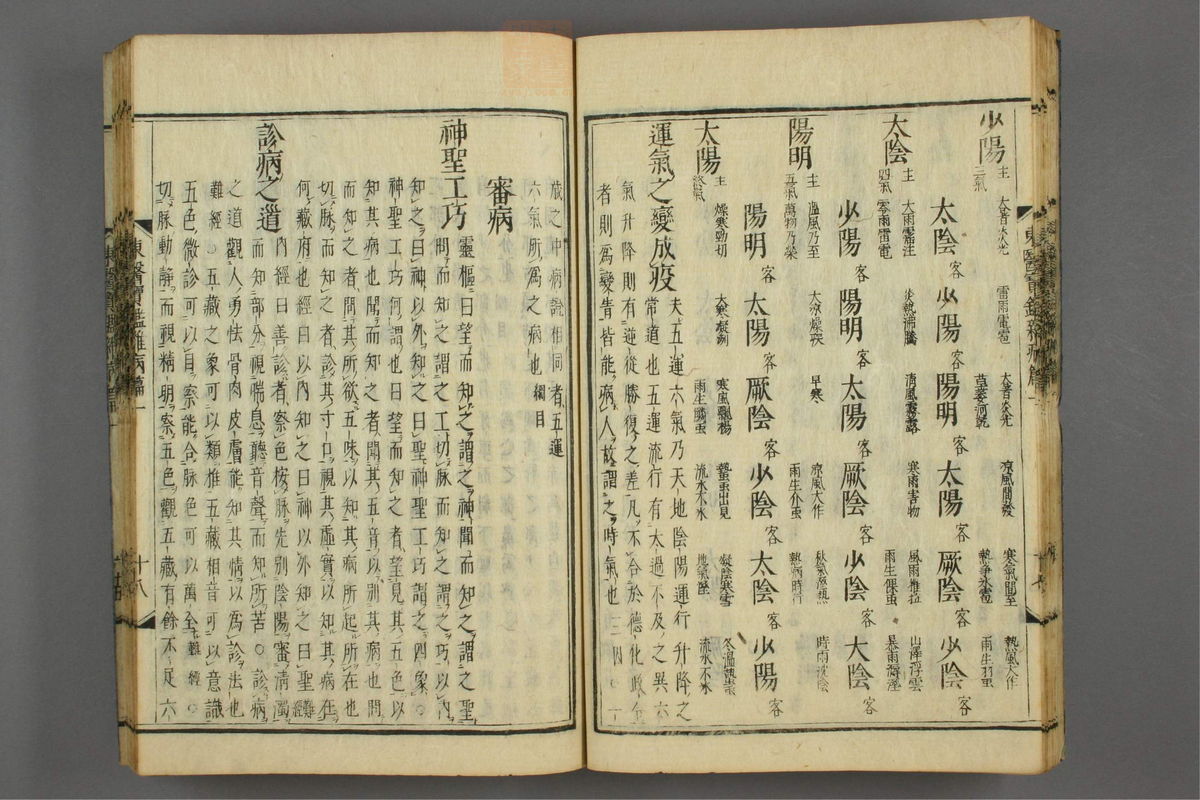 少陽 主 三氣 大暑炎光 雷雨電雹 大暑炎光 草萎河乾 凉風間發 寒氣間至 熱爭氷雹 熱風大作 雨生羽虫
太陰客 少陽客 陽明客 太陽客 厥陰客 少陰客
太陰 主 四氣 大雨霑注 雷雨電 炎熱沸騰 清風霧露 寒雨害物 風雨摧拉 雨生倮虫 山澤浮雲 暴雨溽濕
少陽客 陽明客 太陽客 厥陰客 少陰客 太陰客
陽明 主 五氣 溫風乃至 萬物乃榮 大凉燥疾 早寒 凉風大作 雨生介虫 秋氣濕熱 熱病時行 時雨沉陰
陽明客 太陽客 厥陰客 少陰客 太陰客 少陽客
太陽 主 終氣 燥寒勁切 大寒凝冽 寒風飄揚 雨生鱗虫 蟄虫出見 流水不氷 凝陰寒雪 地氣濕 冬溫蟄虫 流水不氷
運氣之變成疫 夫五運六氣乃天地陰陽運行升降之
常道也五運流行有太過不及之異六
氣升降則有逆從勝復之差凡不合於德化政令
者則爲變眚皆能病人故謂之時氣也 三因○一
歲之中病證相同者五運
六氣所爲之病也 綱目
審病
神聖工巧 靈樞曰望而知之謂之神聞而知之謂之聖
問而知之謂之工切脉而知之謂之巧以內
知之曰神以外知之曰聖神聖工巧謂之四象○
神聖工巧何謂也曰望而知之者望見其五色以
知其病也聞而知之者聞其五音以別其病也問
而知之者問其所欲五味以知其病所起所在也
切脉而知之者診其寸口視其虛實以知其病在
何藏府也經曰以內知之曰神以外知之曰聖 難經
診病之道 內經曰善診者察色按脉先別陰陽審淸濁
而知部分視喘息聽音聲而知所苦○診病
之道觀人勇怯骨肉皮膚能知其情以爲診法也
難經○五藏之象可以類推五藏相音可以意識
五色微診可以目察能合脉色可以萬全 難經
切脉動靜而視精明察五色觀五藏有餘不足六
東醫寶鑑雜病篇一
十八